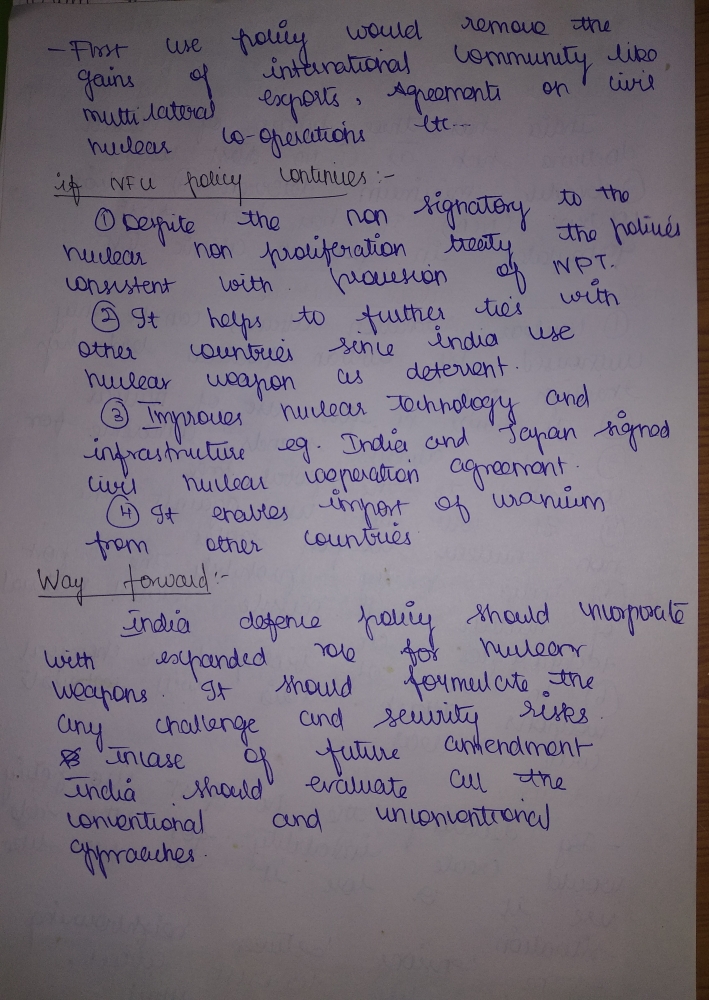 - First use policy would remove the
gains of international community like
multilateral exports, Agreements on civil
nuclear co-operations etc...
if NFU policy continues:-
① Despite the non signatory to the
nuclear non proliferation treaty the policies
consistent with provision of NPT.
② It helps to further ties with
other countries since india use
nuclear weapon as deterrent.
③ Improves nuclear technology and
infrastruture eg. India and Japan signed
civil nuclear cooperation agreement.
④ It enables import of uranium
from other countries
Way forward:-
India defence policy should incorporate
with expanded role for nuclear
weapons. It should formulate the
any challenge and security risks.
incase of future amendment
india should evaluate all the
conventional and unconventional
approaches.